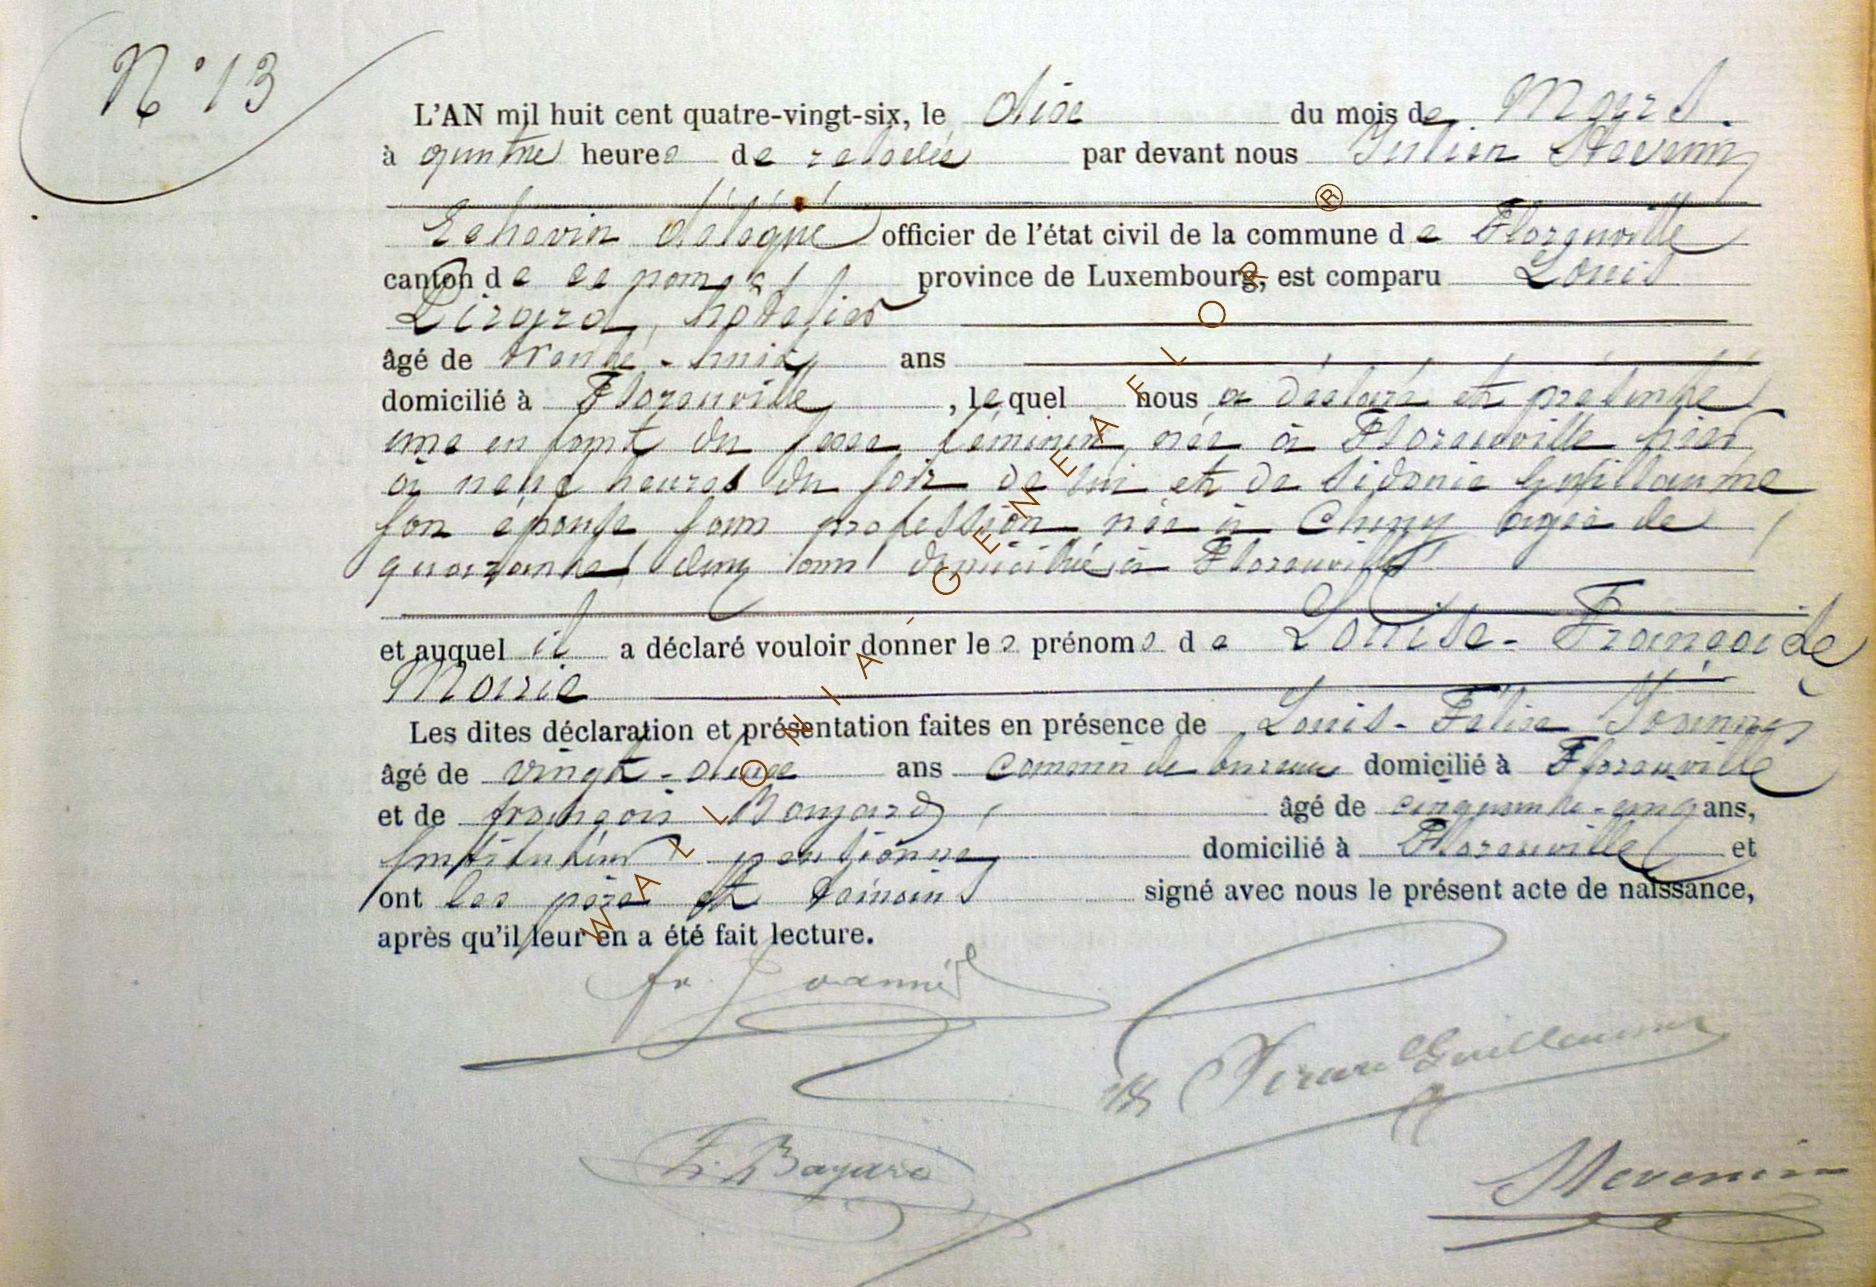 N° 13
L'AN mil huit cent quatre-vingt-six, le dix du mois de Mars.
à quatre heures de relevée par devant nous Julien Stevenin
Echevin délégué officier de l'état civil de la commune de Florenville
canton de ce nom province de Luxembourg, est comparu Louis
Pirard, hôtelier
âgé de trente-huit ans
domicilié à Florenville, lequel nous a déclaré et présenté
une enfant du sexe féminin née à Florenville hier
à neuf heures du soir de lui et de Sidonie Guillaume
son épouse sans profession née à Chiny agée de
quarante deux ans domiciliée à Florenville
et auquel il a déclaré vouloir donner les prénoms de Louise-Françoise
Marie
Les dites déclaration et présentation faites en présence de Louis-Félix Joannès
âgé de vingt- ans commis de bureau domicilié à Florenville
et de françois Bayard, âgé de cinquante-cinq ans,
Instituteur pensionné, domicilié à Florenville et
ont les père et témoins signé avec nous le présent acte de naissance,
après qu'il leur en a été fait lecture.
Joannès
Pirard Guillaume
F. Bayard
Stevenin
WALLONIA-GENEAFLOR®